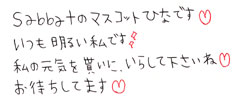 Sabbatのマスコットひなです♡
いつも明るい私です
私の元気を貰いに、いらして下さいね♡
お待ちしてます♡